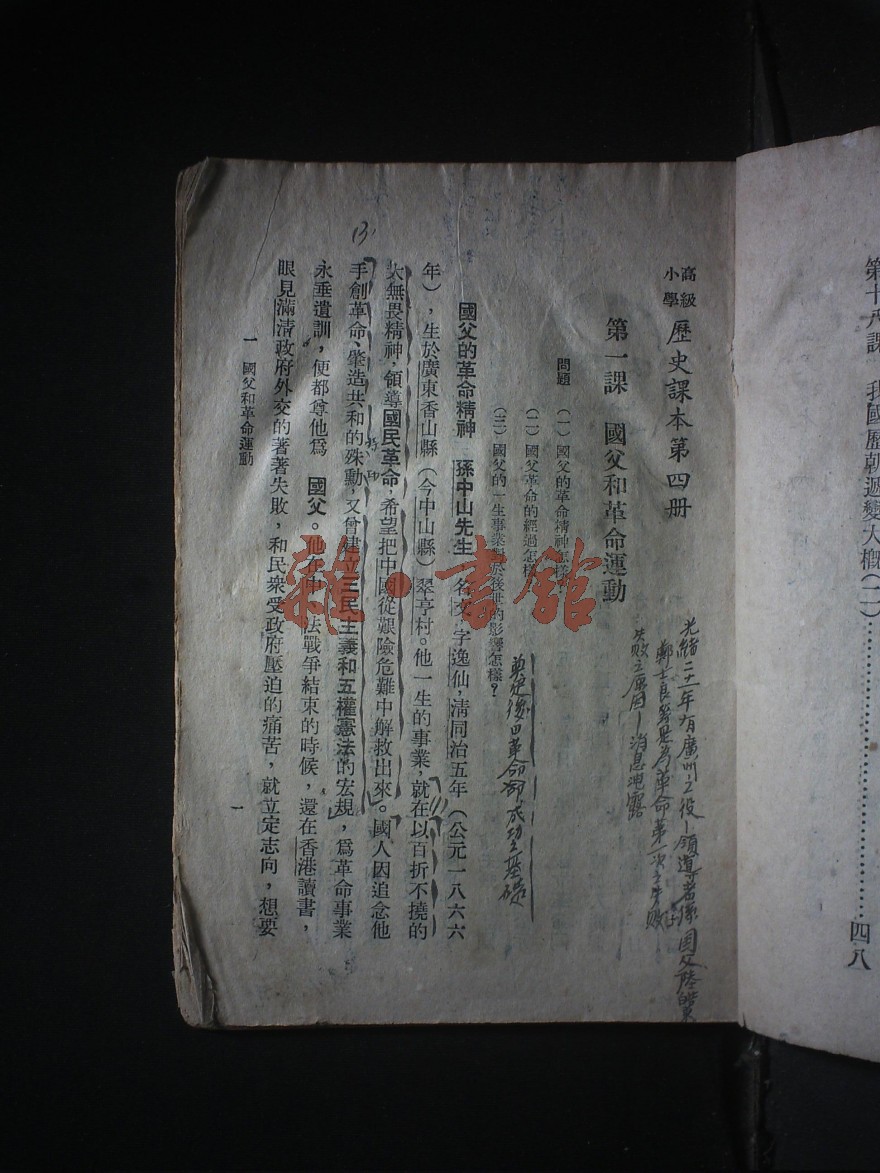 第十八課　我國歷朝遞變大概(二)……………四八
高級小學　歷史課本第四册
光緒二十一年有廣州之役—領導者係國父陸皓東
鄭士良等是為革命第一次之失敗
失敗之原因—消息洩露
第一課　國父和革命運動
問題　(一)國父的革命精神怎樣
(二)國父革命的經過怎樣
(三)國父的一生事業對於後世的影響怎樣?
奠定後日革命成功之基礎
國父的革命精神　孫中山先生，名文，字逸仙，清同治五年(公元一八六六
年)，生於廣東香山縣(今中山縣)翠亨村。他一生的事業，就在以百折不撓的
大無畏精神，領導國民革命，希望把中國從艱險危難中解救出來。國人因追念他
手創革命、肇造共和的殊勳，又曾建立三民主義和五權憲法的宏規，爲革命事業
永垂遺訓，便都尊他爲　國父。他在中　法戰爭結束的時候，還在香港讀書，
眼見滿清政府外交的著著失敗，和民衆受政府壓迫的痛苦，就立定志向，想要
一　國父和革命運動
一
13
雜·書館